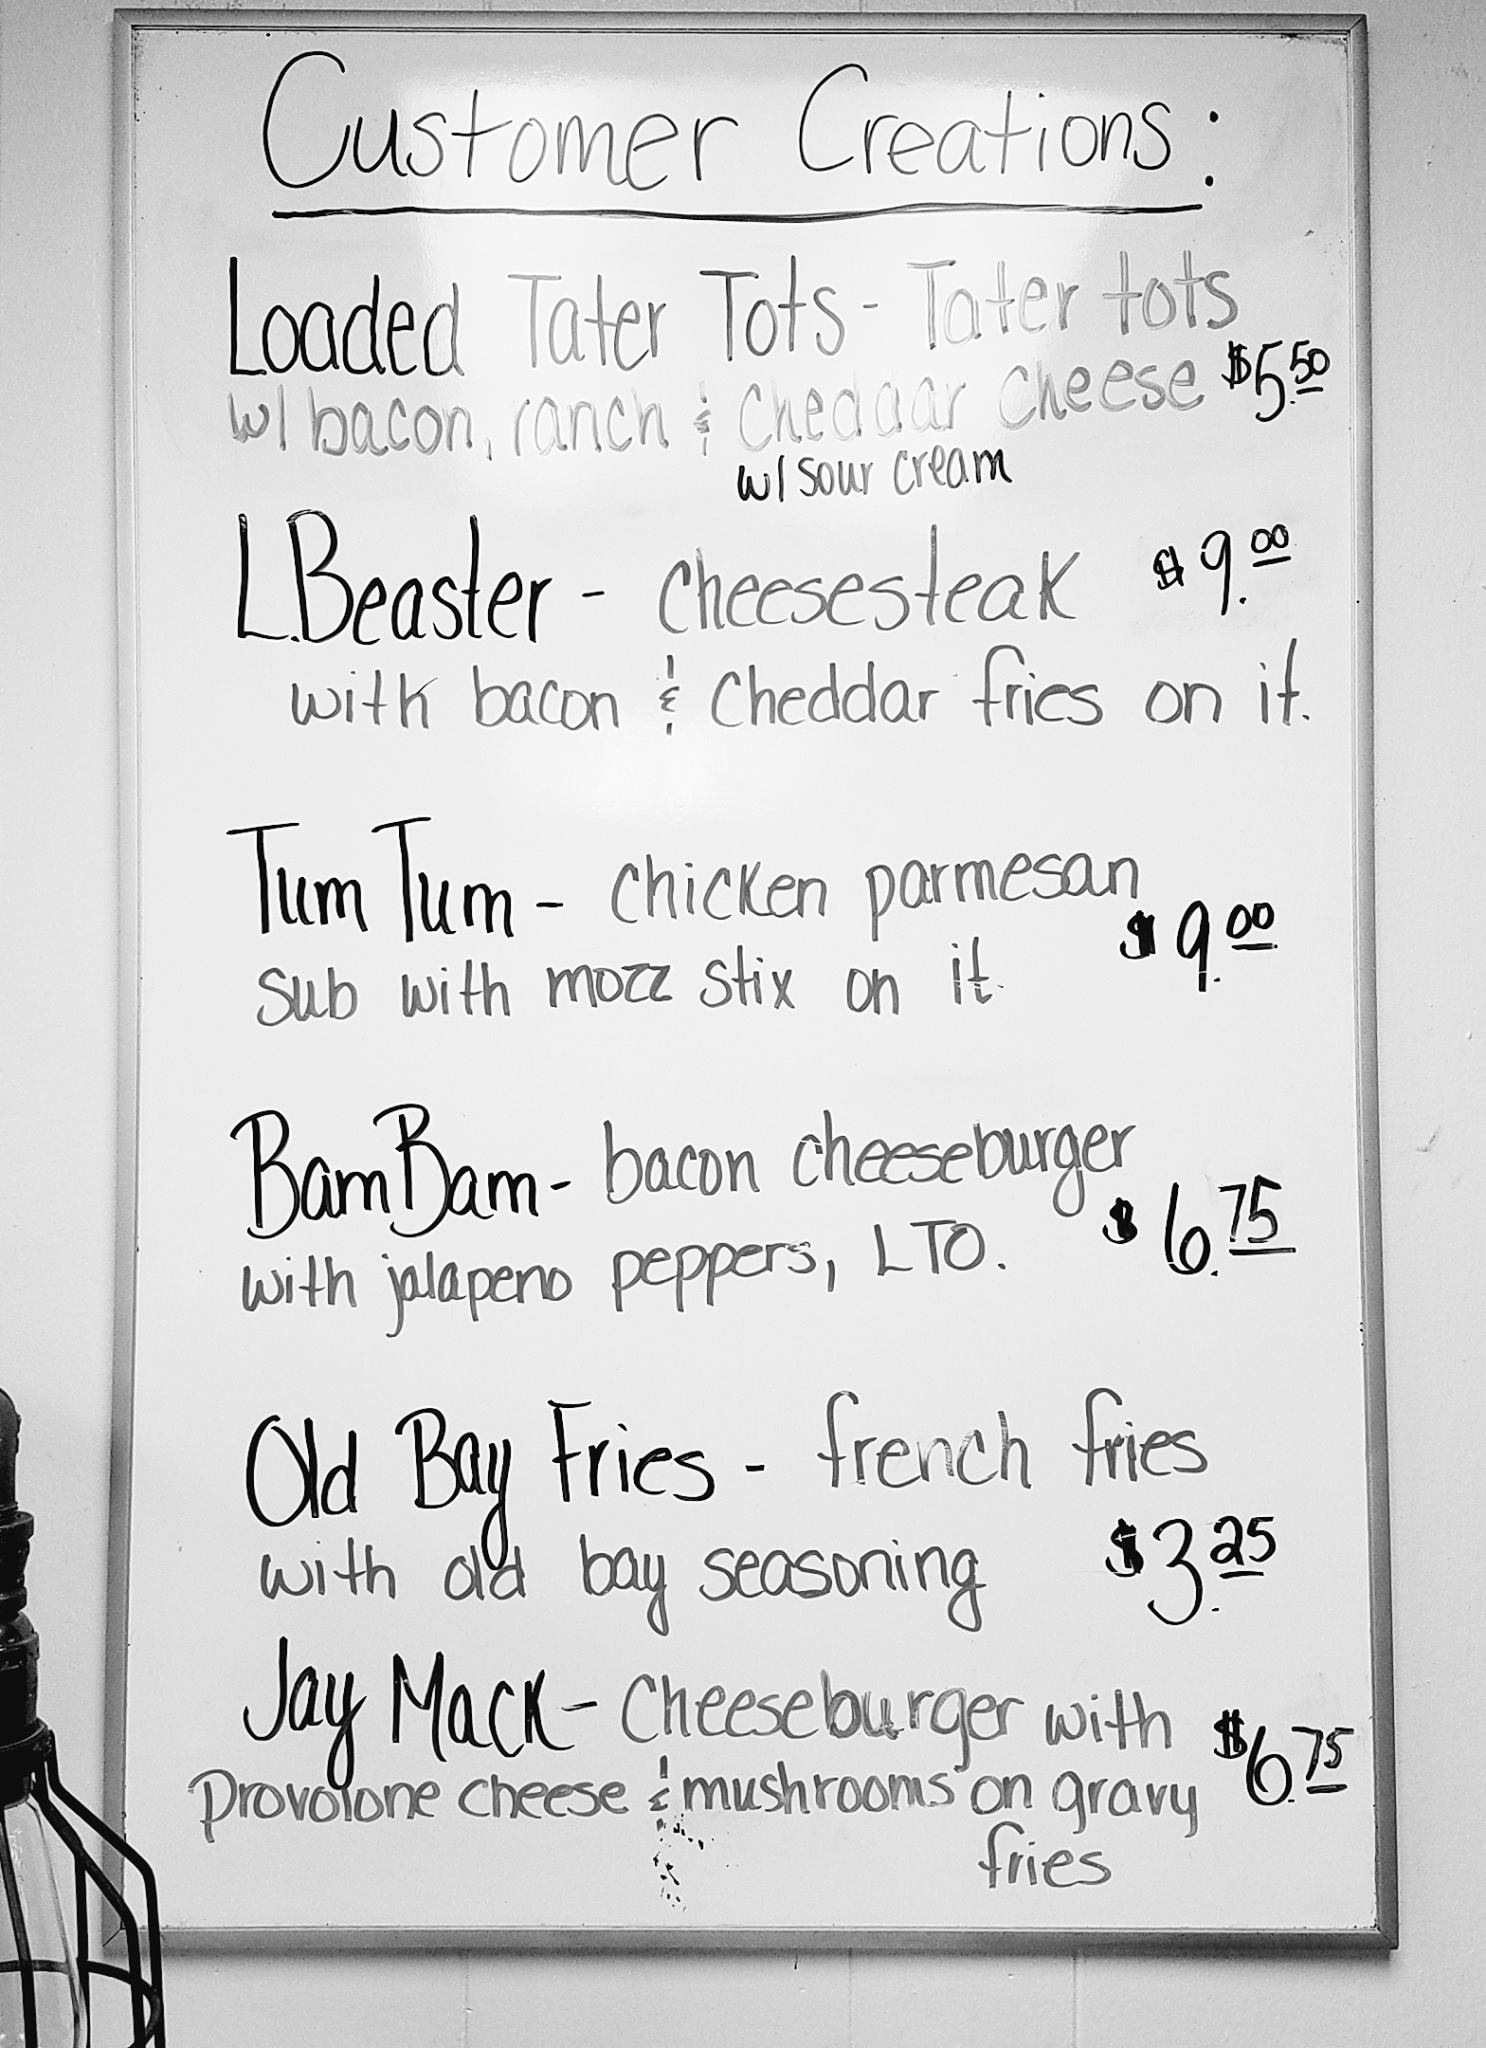 Customer Creations:
Loaded Tater Tots - Tater tots
w/ bacon, ranch & cheddar cheese $5.50
w/ sour cream
L.Beaster - cheesesteak $9.00
with bacon & cheddar fries on it.
Tum Tum - chicken parmesan
sub with mozz stix on it. $9.00
BamBam - bacon cheeseburger
with jalapeno peppers, LTO. $6.75
Old Bay Fries - french fries
with old bay seasoning $3.25
Jay Mack - Cheeseburger with
Provolone cheese & mushrooms on gravy $6.75
fries